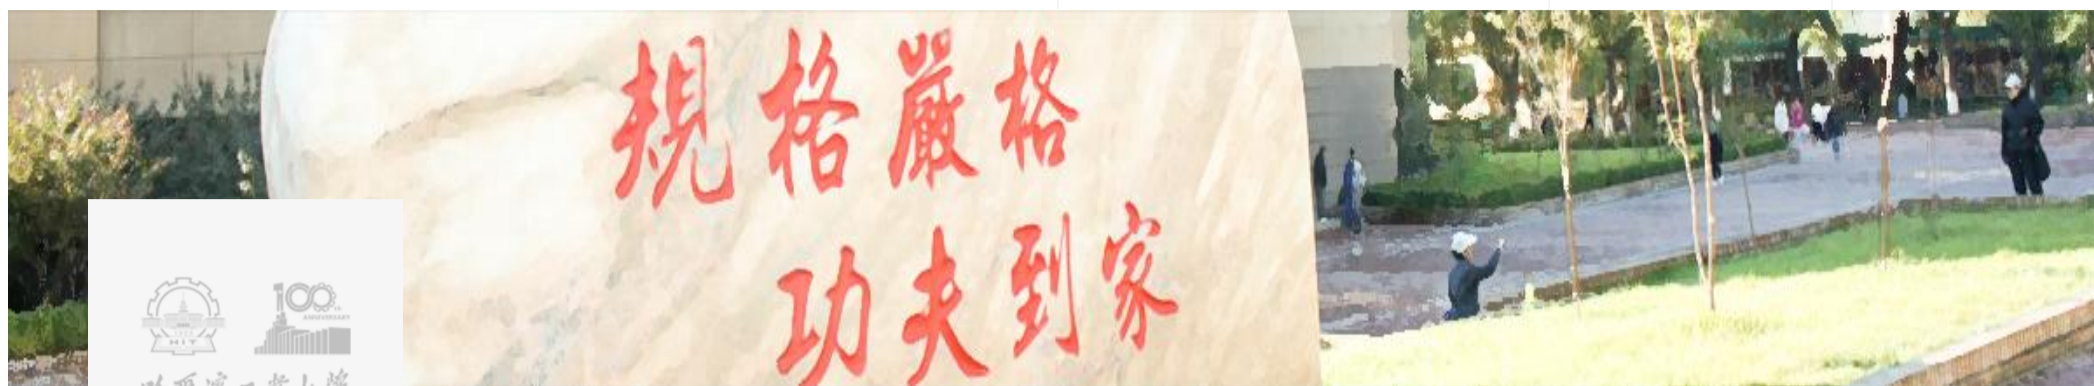 規格嚴格
功夫到家
HIT
100
ANNIVERSARY